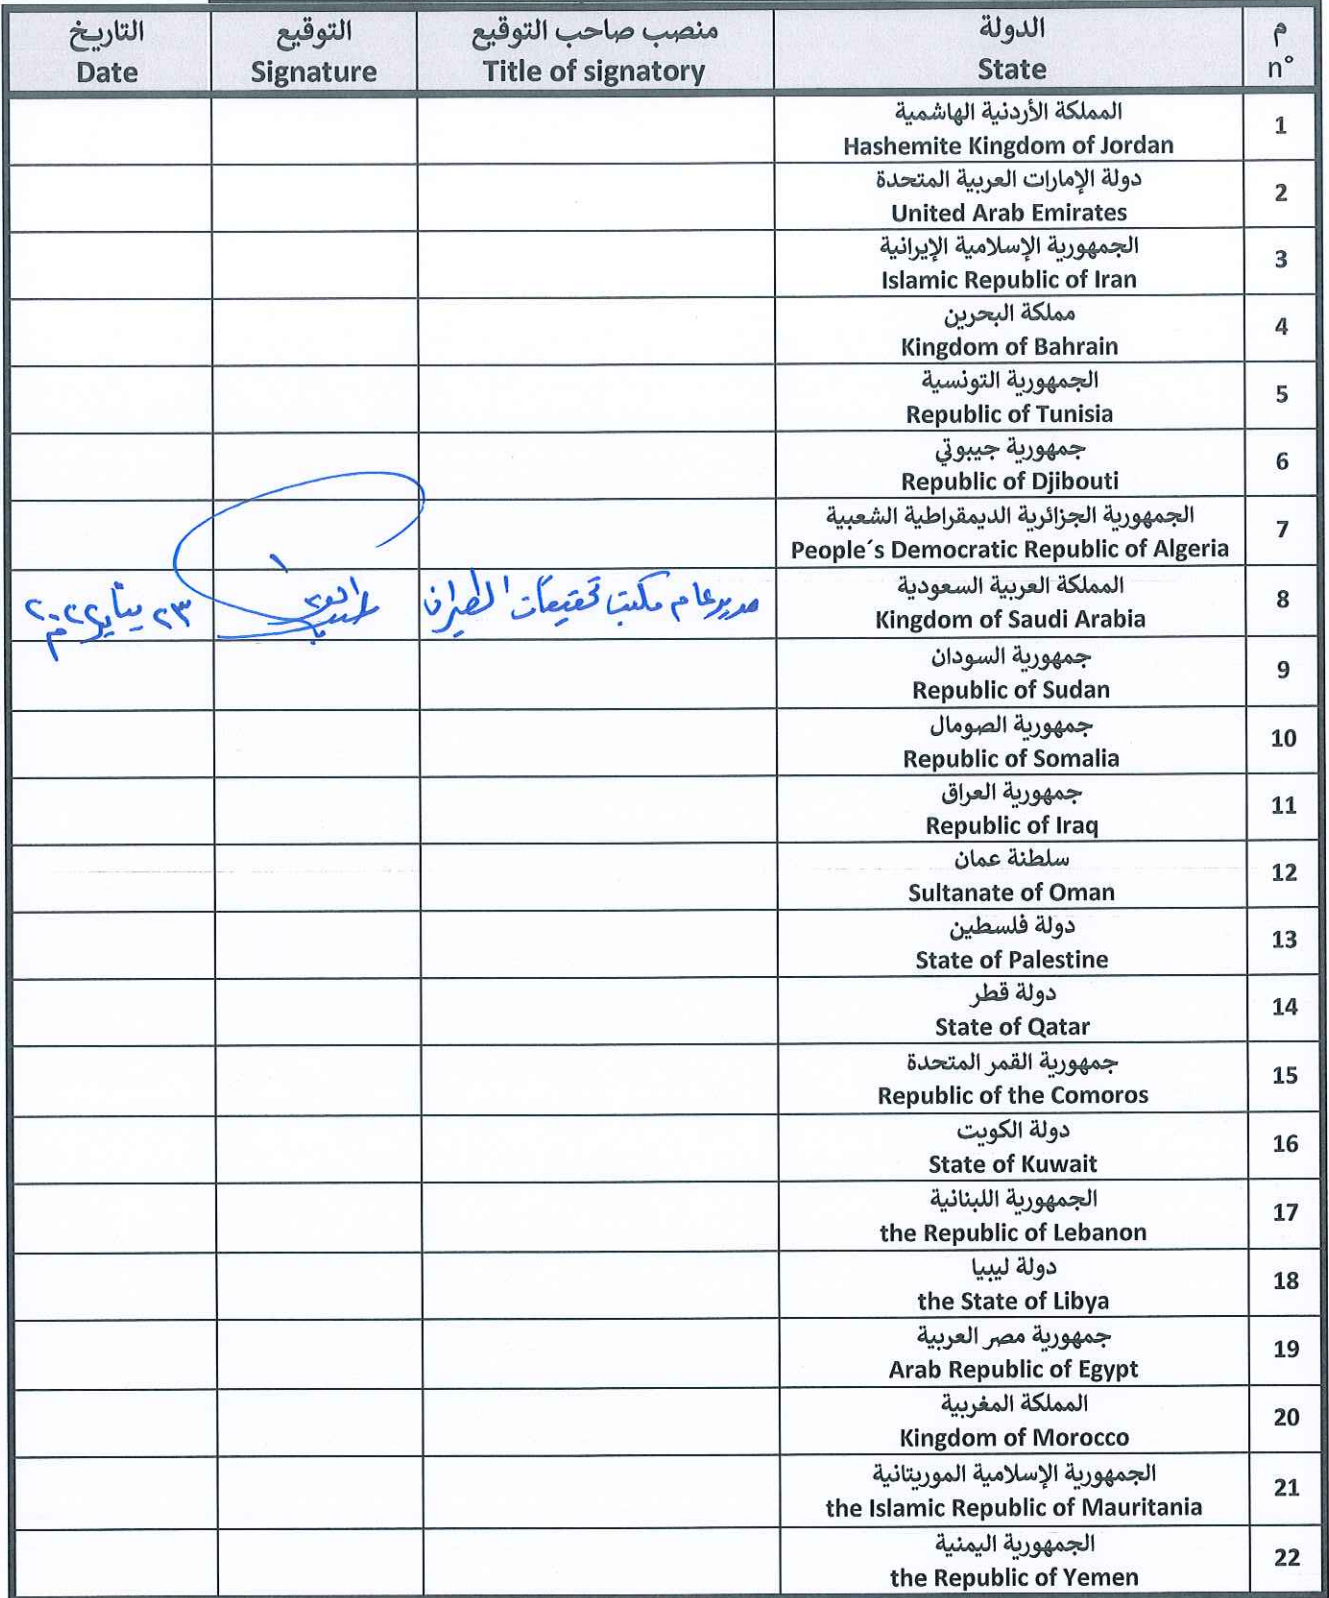 م	الدولة	منصب صاحب التوقيع	التوقيع	التاريخ
n°	State	Title of signatory	Signature	Date
المملكة الأردنية الهاشمية
1
Hashemite Kingdom of Jordan
دولة الإمارات العربية المتحدة
2
United Arab Emirates
الجمهورية الإسلامية الإيرانية
3
Islamic Republic of Iran
مملكة البحرين
4
Kingdom of Bahrain
الجمهورية التونسية
5
Republic of Tunisia
جمهورية جيبوتي
6
Republic of Djibouti
الجمهورية الجزائرية الديمقراطية الشعبية
7
People´s Democratic Republic of Algeria
المملكة العربية السعودية
8	مدير عام مكتب تحقيقات الطيران	٢٣ يناير ٢٠٢٢م
Kingdom of Saudi Arabia
جمهورية السودان
9
Republic of Sudan
جمهورية الصومال
10
Republic of Somalia
جمهورية العراق
11
Republic of Iraq
سلطنة عمان
12
Sultanate of Oman
دولة فلسطين
13
State of Palestine
دولة قطر
14
State of Qatar
جمهورية القمر المتحدة
15
Republic of the Comoros
دولة الكويت
16
State of Kuwait
الجمهورية اللبنانية
17
the Republic of Lebanon
دولة ليبيا
18
the State of Libya
جمهورية مصر العربية
19
Arab Republic of Egypt
المملكة المغربية
20
Kingdom of Morocco
الجمهورية الإسلامية الموريتانية
21
the Islamic Republic of Mauritania
الجمهورية اليمنية
22
the Republic of Yemen